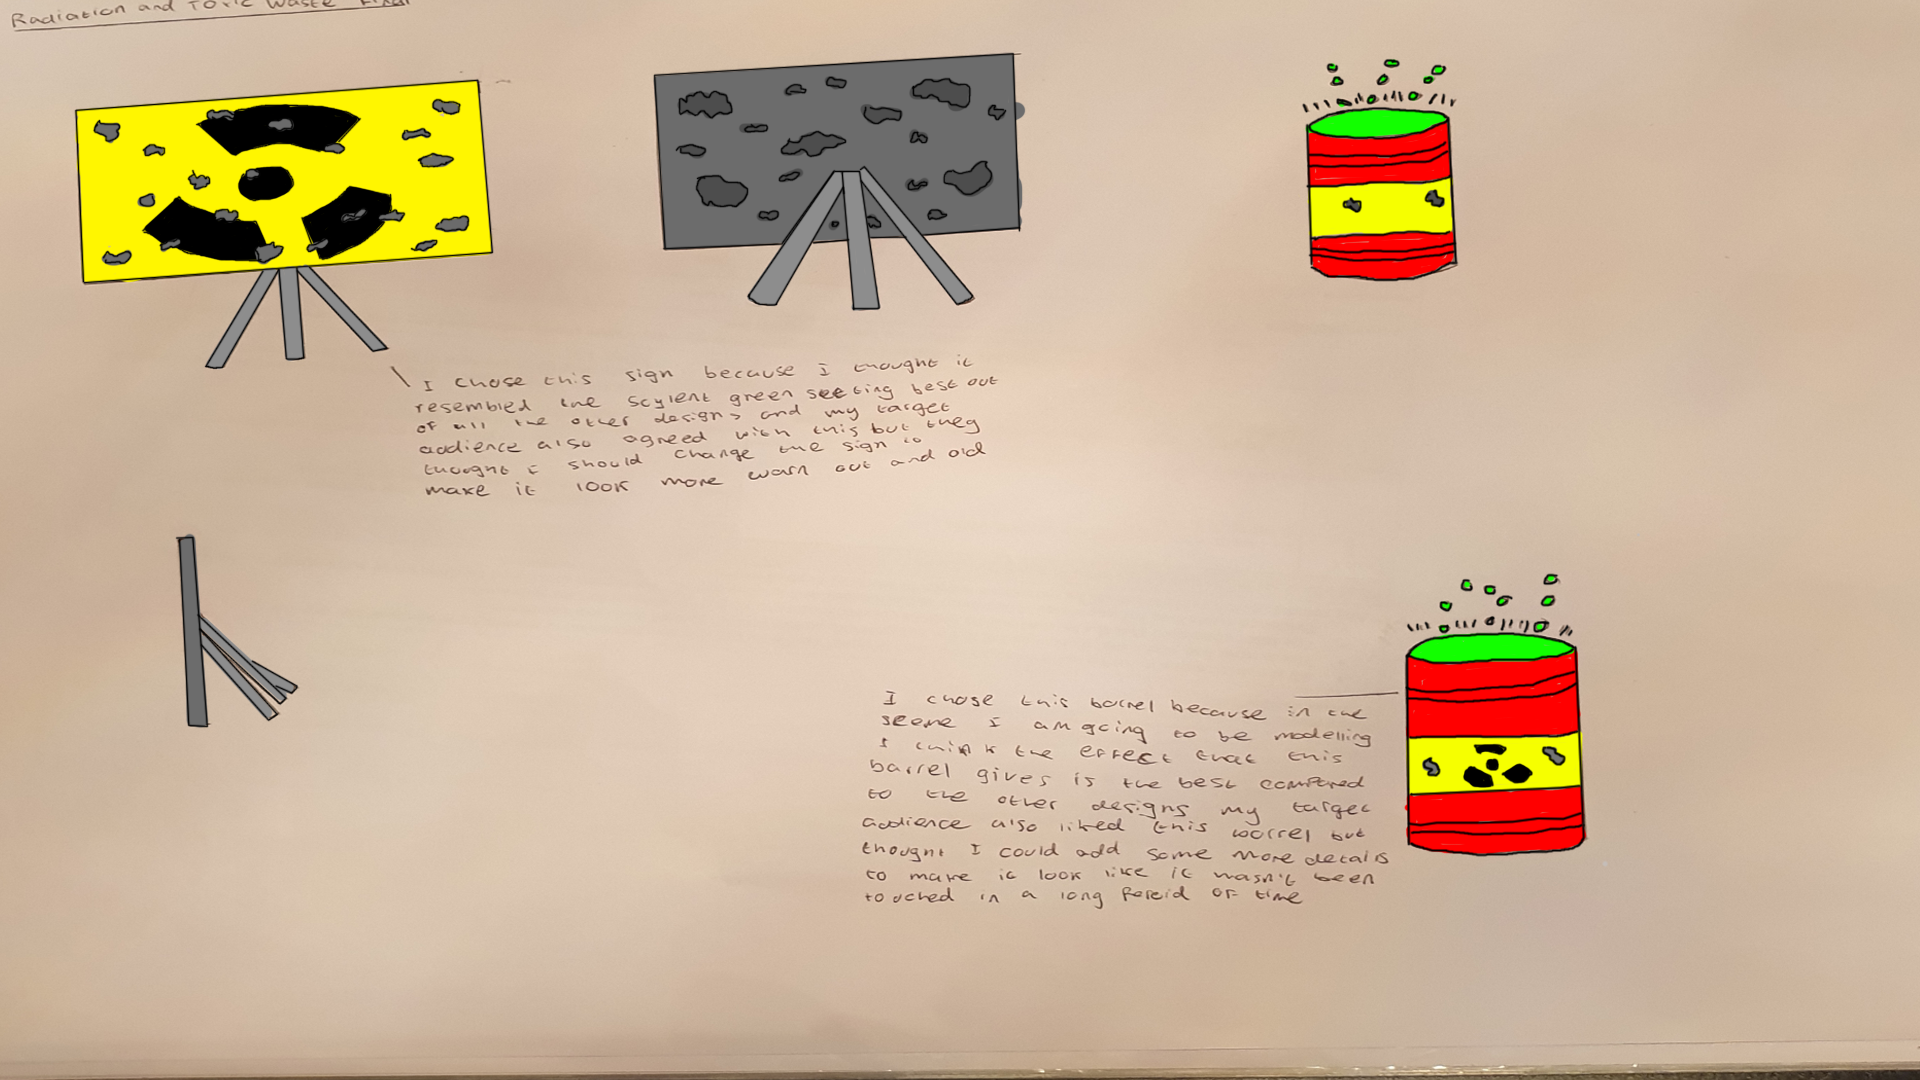 Radiation and Toxic Waste Final
I chose this sign because I thought it
resembled the scylent green seeting best out
of all the other designs and my target
audience also agreed with this but they
thought I should change the sign to
make it look more warn out and old
I chose this barrel because in the
sceene I am going to be modelling
I think the effect that this
barrel gives is the best compared
to the other designs my target
audience also liked this barrel but
thought I could add some more details
to make it look like it wasn't been
touched in a long pereid of time